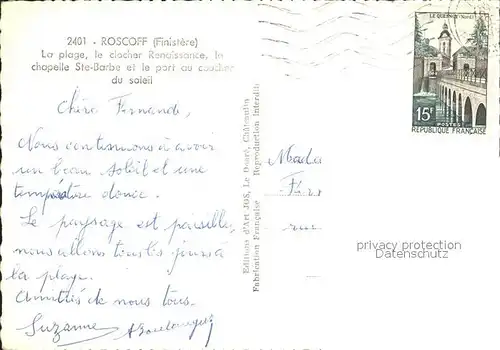 2401 - ROSCOFF (Finistère)
La plage, le clocher Renaissance, la
chapelle Ste-Barbe et le port au coucher
du soleil
Chère Fernande,
Nous continuons à avoir
un beau soleil et une
température douce.
Le paysage est pareille,
nous allons tous les jours à
la plage.
Amitiés de nous tous.
Suzanne
Editions d'Art JOS, Le Doaré, Châteaulin
Fabrication Française Reproduction Interdite
LE QUESNOY (Nord)
15F
POSTES
REPUBLIQUE FRANÇAISE
Mada
rue
privacy protection
Datenschutz